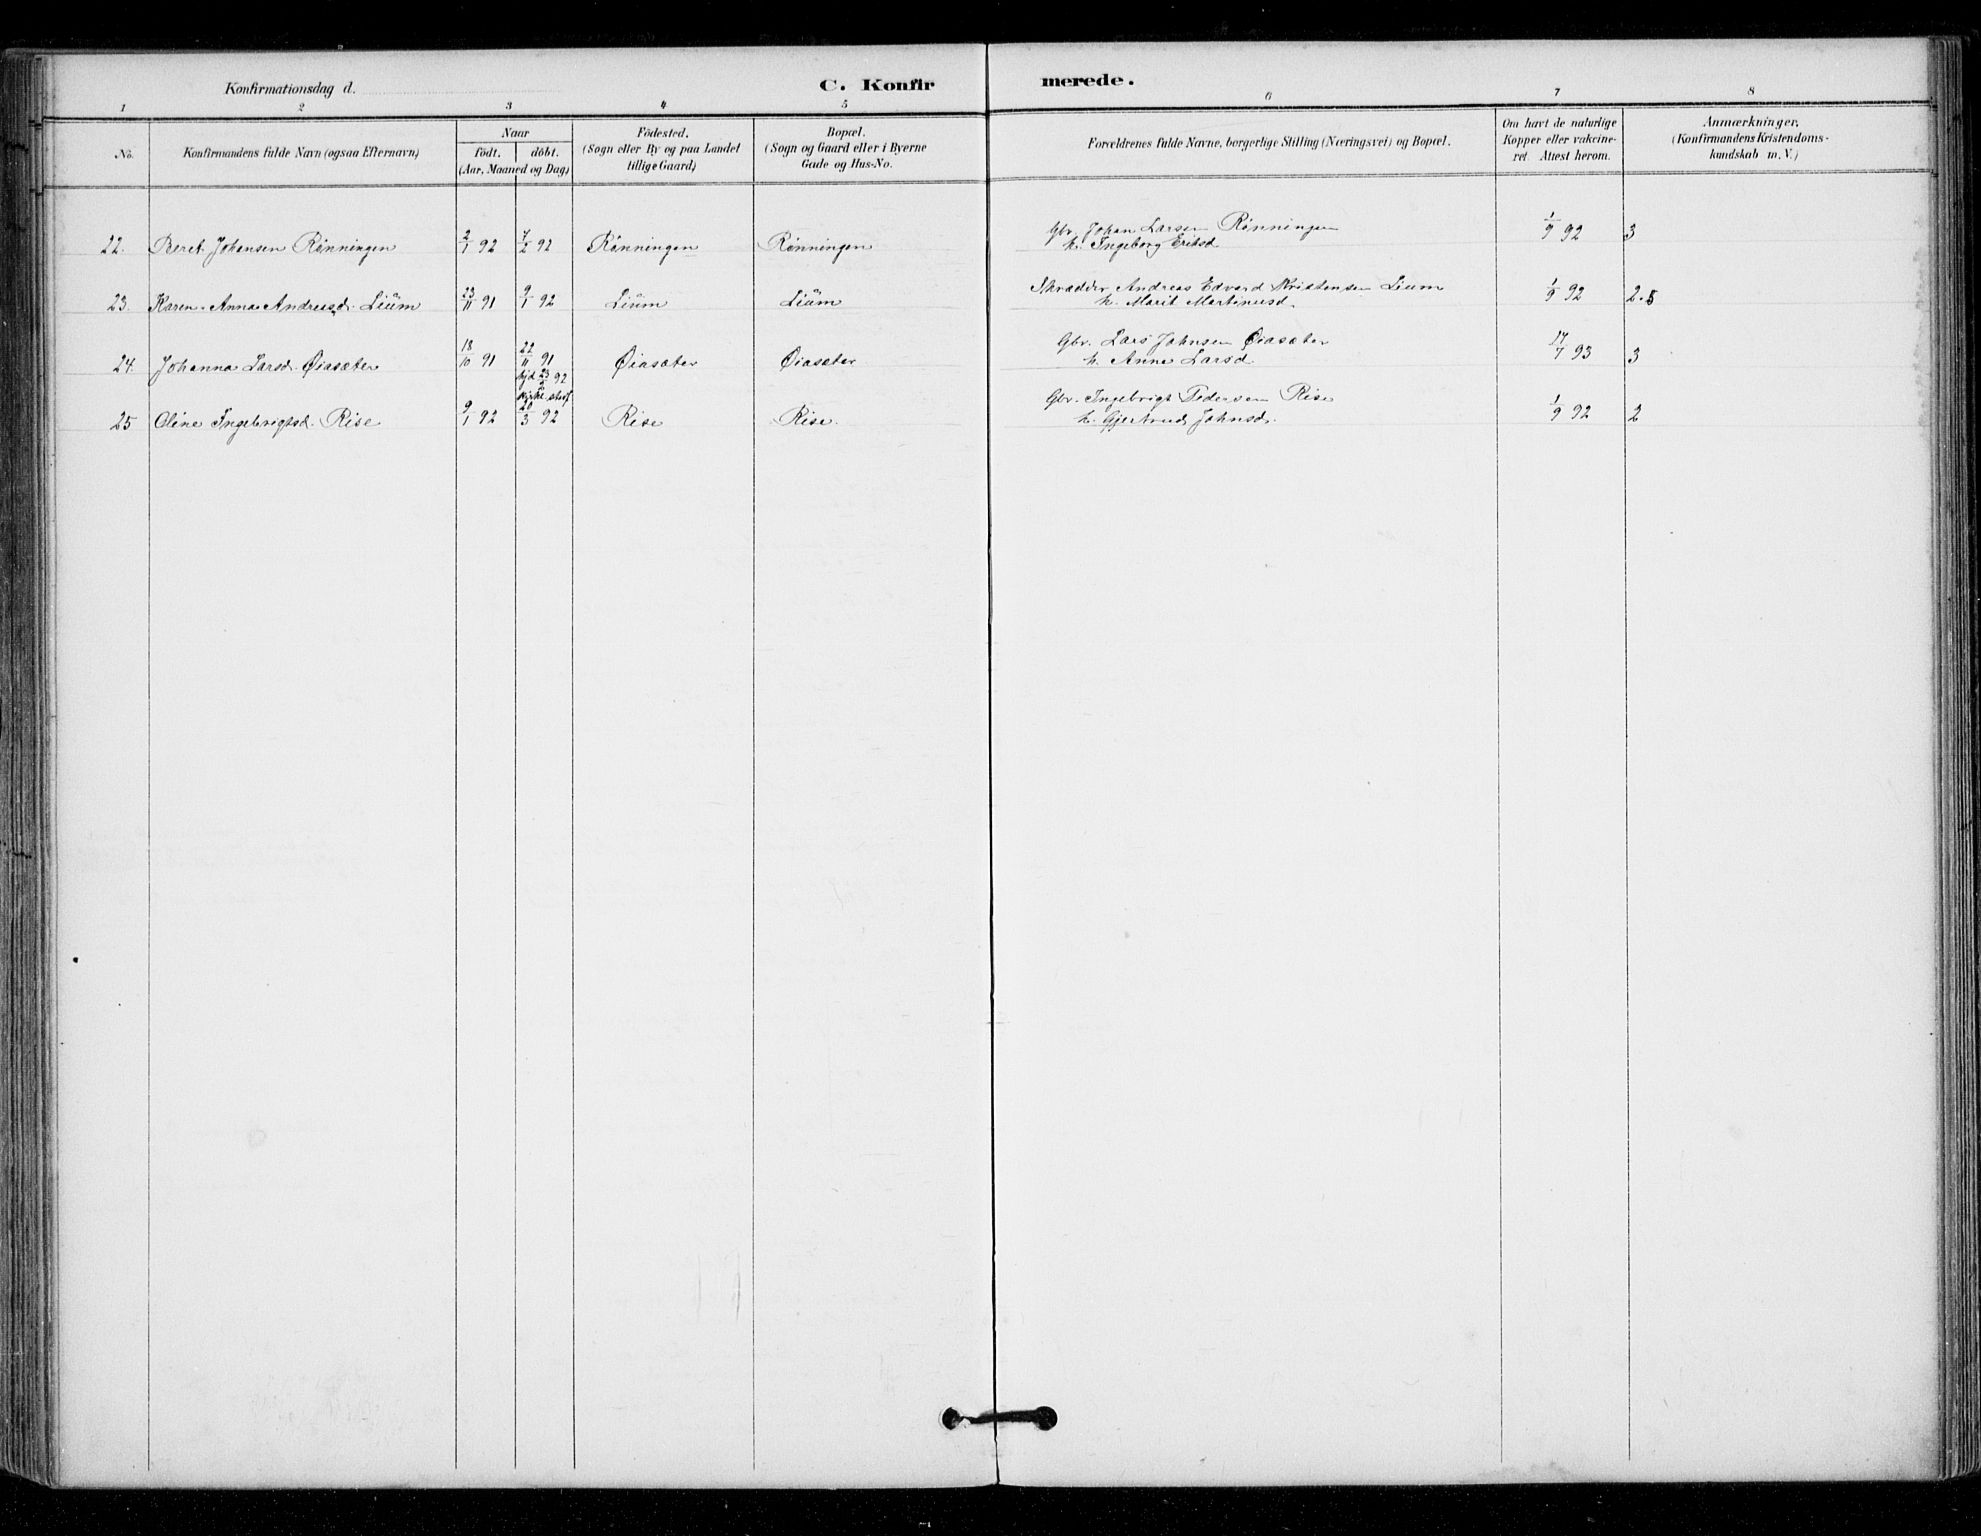 Konfirmationsdag d.
C. Konfir
merede.
1 2 3 4 5 6 7 8
No.
Konfirmandens fulde Navn (ogsaa Efternavn)
Naar
födt. döbt.
(Aar, Maaned og Dag)
Födested.
(Sogn eller By og paa Landet
tillige Gaard)
Bopæl.
(Sogn og Gaard eller i Byerne
Gade og Hus-No.
Forældrenes fulde Navne, borgerlige Stilling (Næringsvei) og Bopæl.
Om havt de naturlige
Kopper eller vakcine-
ret. Attest herom.
Anmærkninger.
(Konfirmandens Kristendoms-
kundskab m. V.)
22. Beret Johansen Rønningen 2/1 92 7/2 92 Rønningen Rønningen Gbr. Johan Larsen Rønningen 1/9 92 3
h. Ingeborg Eriksd
23. Karen Anna Andreasd. Liŭm 23/11 91 9/1 92 Liŭm Liŭm Skrædder Andreas Edvard Kristensen Lium 1/9 92 2.5
h. Marit Martinusd.
24. Johanna Larsd. Øiasæter 18/10 91 22/11 91 Øiasæter Øiasæter Gbr. Lars Johnsen Øiasæter 17/7 93 3
h. Anne Larsd.
hjd 23/2 92
25 Oline Ingebrigtsd. Rise 9/1 92 20/3 92 Rise Rise. Gbr. Ingebrigt Pedersen Rise 1/9 92 2
h. Gjertrud Johnsd.